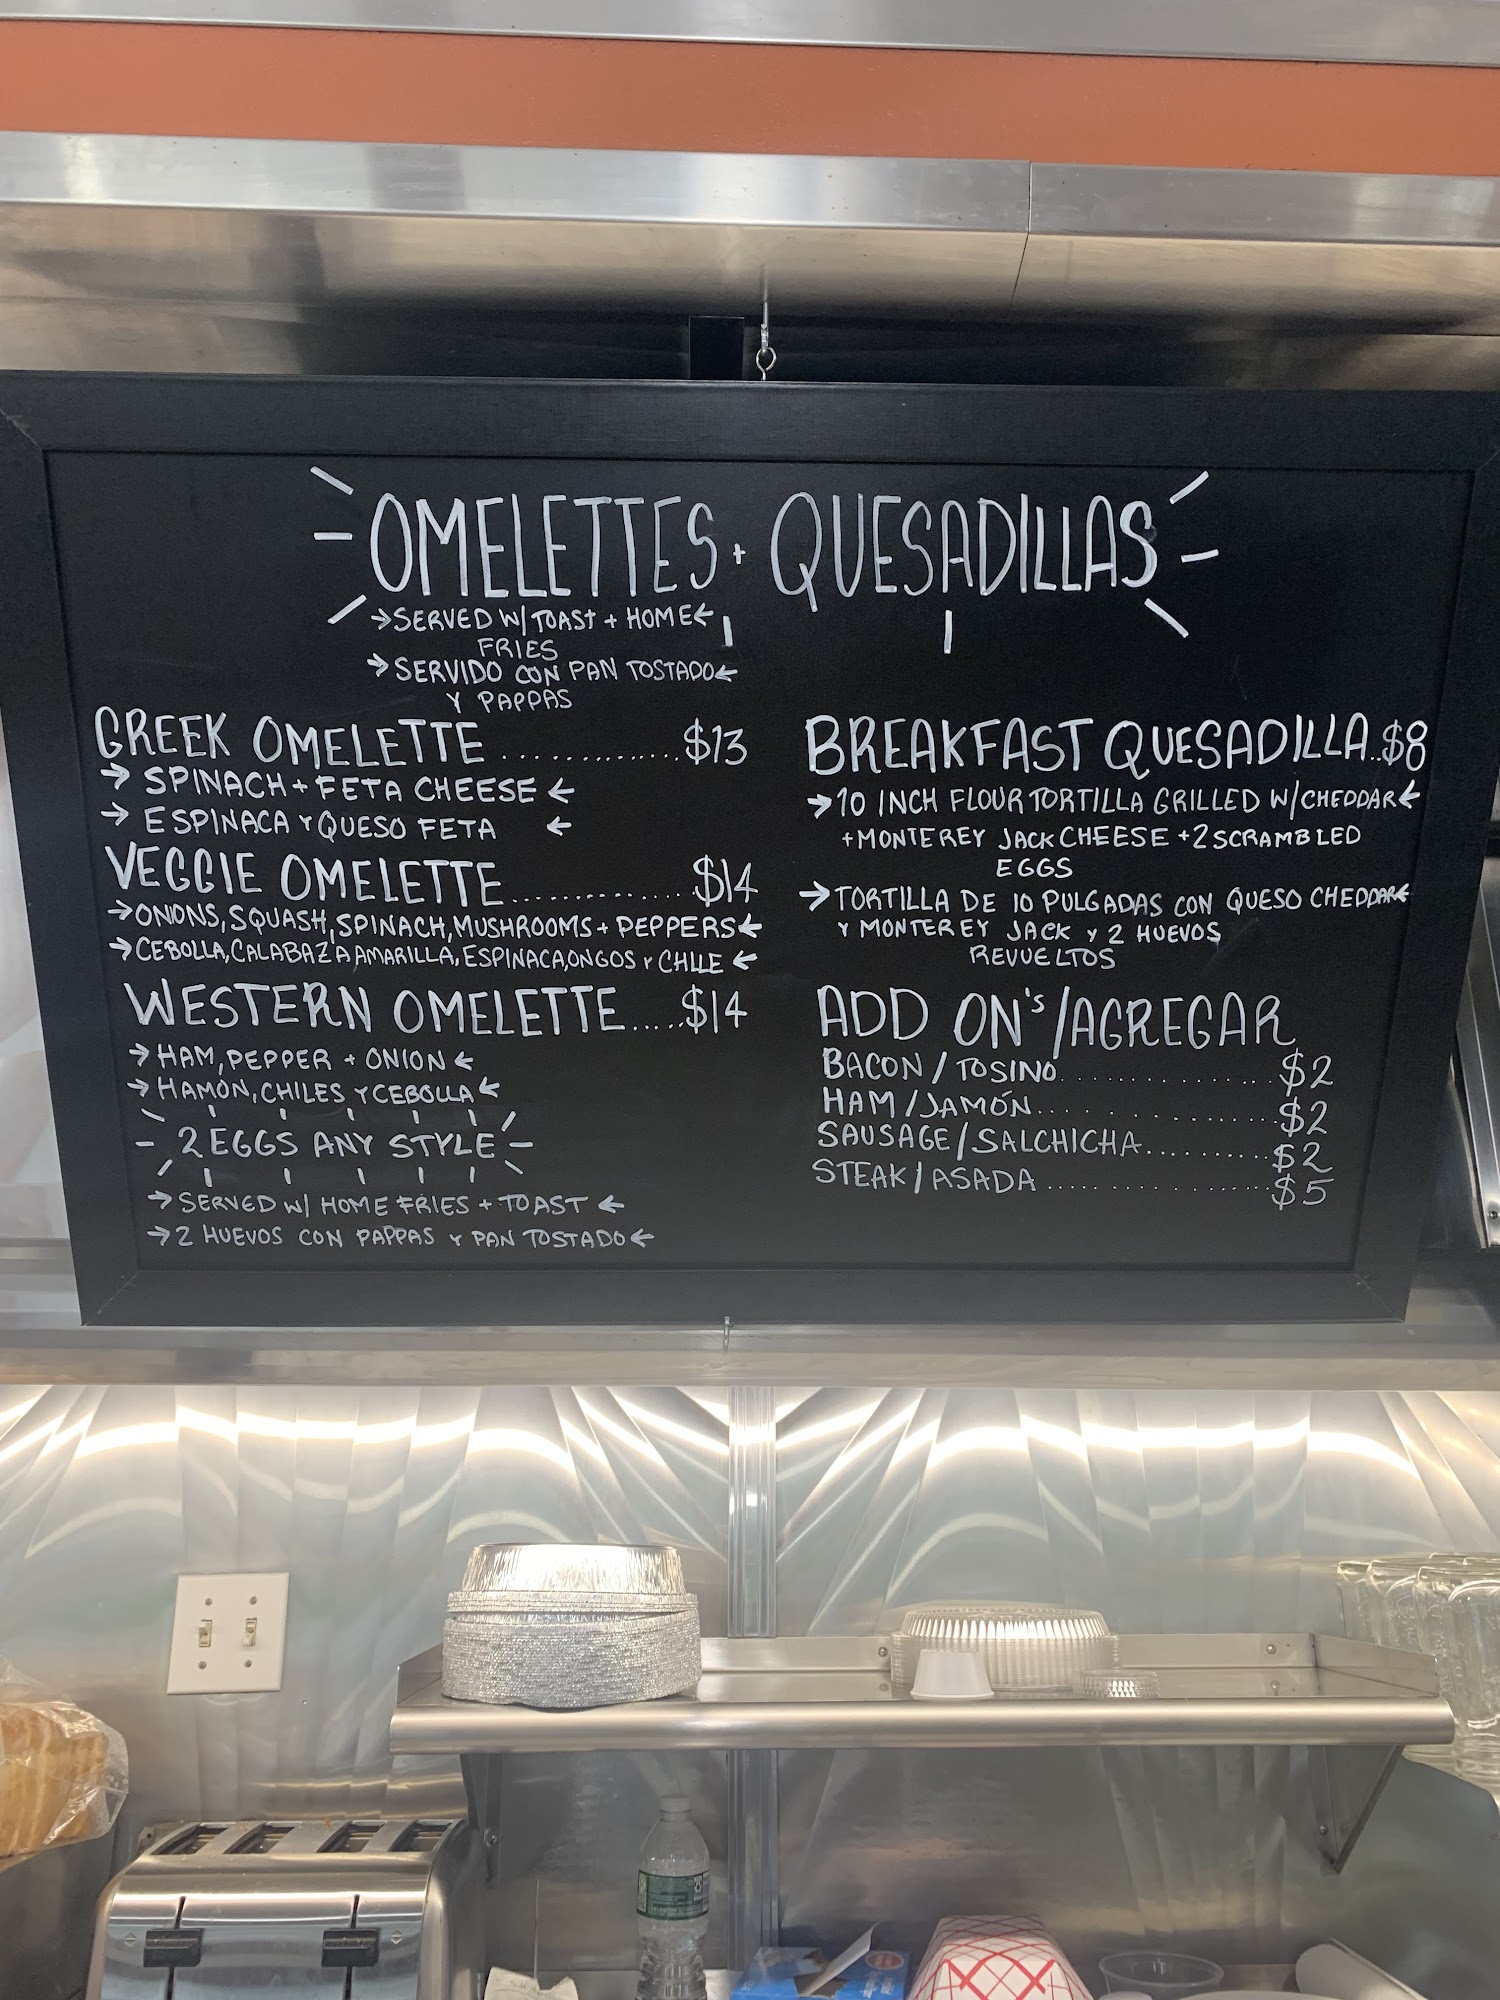 OMELETTES + QUESADILLAS
→SERVED W/ TOAST + HOME←
FRIES
→SERVIDO CON PAN TOSTADO←
Y PAPPAS
GREEK OMELETTE..............$13
→ SPINACH + FETA CHEESE ←
→ ESPINACA Y QUESO FETA ←
VEGGIE OMELETTE..............$14
→ONIONS, SQUASH, SPINACH, MUSHROOMS + PEPPERS←
→CEBOLLA, CALABAZA AMARILLA, ESPINACA, ONGOS Y CHILE ←
WESTERN OMELETTE.....$14
→HAM, PEPPER + ONION←
→HAMÓN, CHILES Y CEBOLLA←
2 EGGS ANY STYLE
→SERVED W/ HOME FRIES + TOAST ←
→2 HUEVOS CON PAPPAS Y PAN TOSTADO←
BREAKFAST QUESADILLA..$8
→10 INCH FLOUR TORTILLA GRILLED W/CHEDDAR←
+MONTEREY JACK CHEESE +2 SCRAMBLED
EGGS
→TORTILLA DE 10 PULGADAS CON QUESO CHEDDAR←
Y MONTEREY JACK Y 2 HUEVOS
REVUELTOS
ADD ON'S /AGREGAR
BACON / TOSINO.................$2
HAM/JAMÓN.................$2
SAUSAGE/SALCHICHA..........$2
STEAK/ASADA.................$5